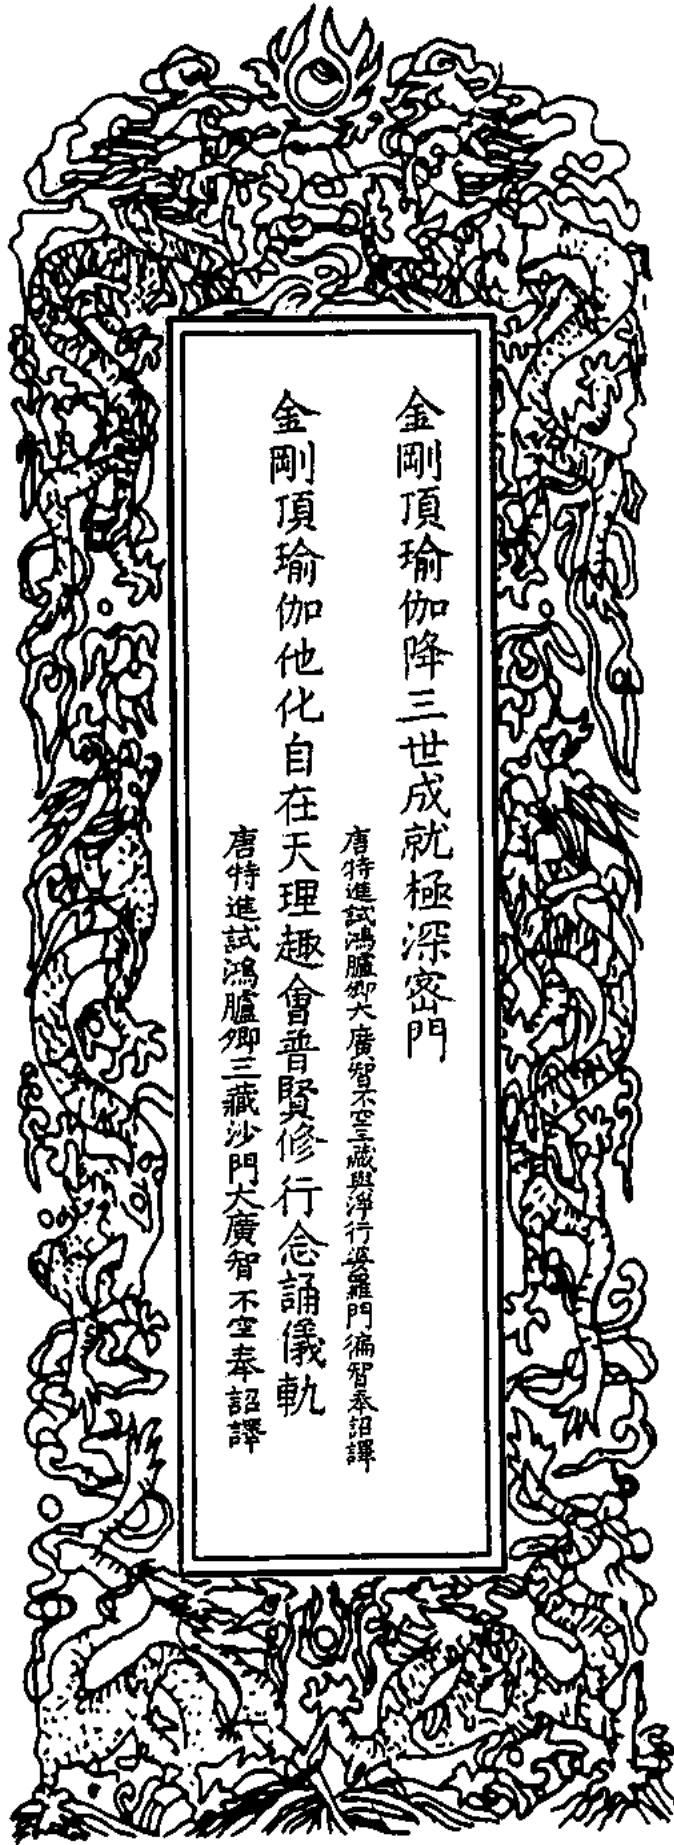 金剛頂瑜伽降三世成就極深密門
唐特進試鴻臚卿大廣智不空三藏與淨行婆羅門徧智奉詔譯
金剛頂瑜伽他化自在天理趣會普賢修行念誦儀軌
唐特進試鴻臚卿三藏沙門大廣智不空奉詔譯